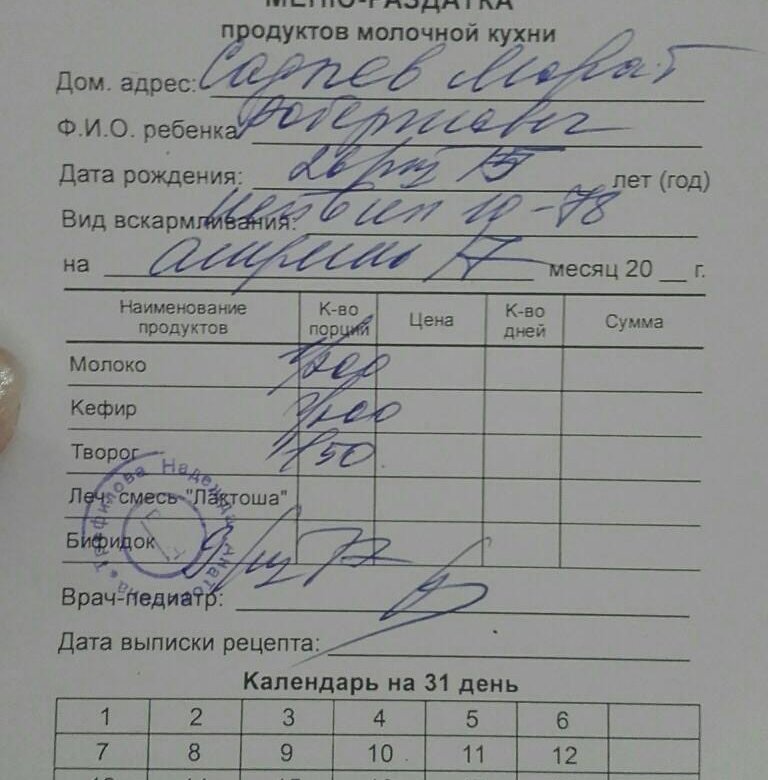 МЕНЮ-РАЗДАТКА
продуктов молочной кухни
Дом. адрес: Марат
Ф.И.О. ребенка Робертович
Дата рождения: 15 лет (год)
Вид вскармливания: 10-78
на апрель 17 месяц 20 __ г.
Наименование продуктов К-во порций Цена К-во дней Сумма
Молоко 1/200
Кефир 1/200
Творог 1/50
Леч. смесь "Лактоша"
Бифидок
Врач-педиатр:
Дата выписки рецепта:
Календарь на 31 день
1 2 3 4 5 6
7 8 9 10 11 12